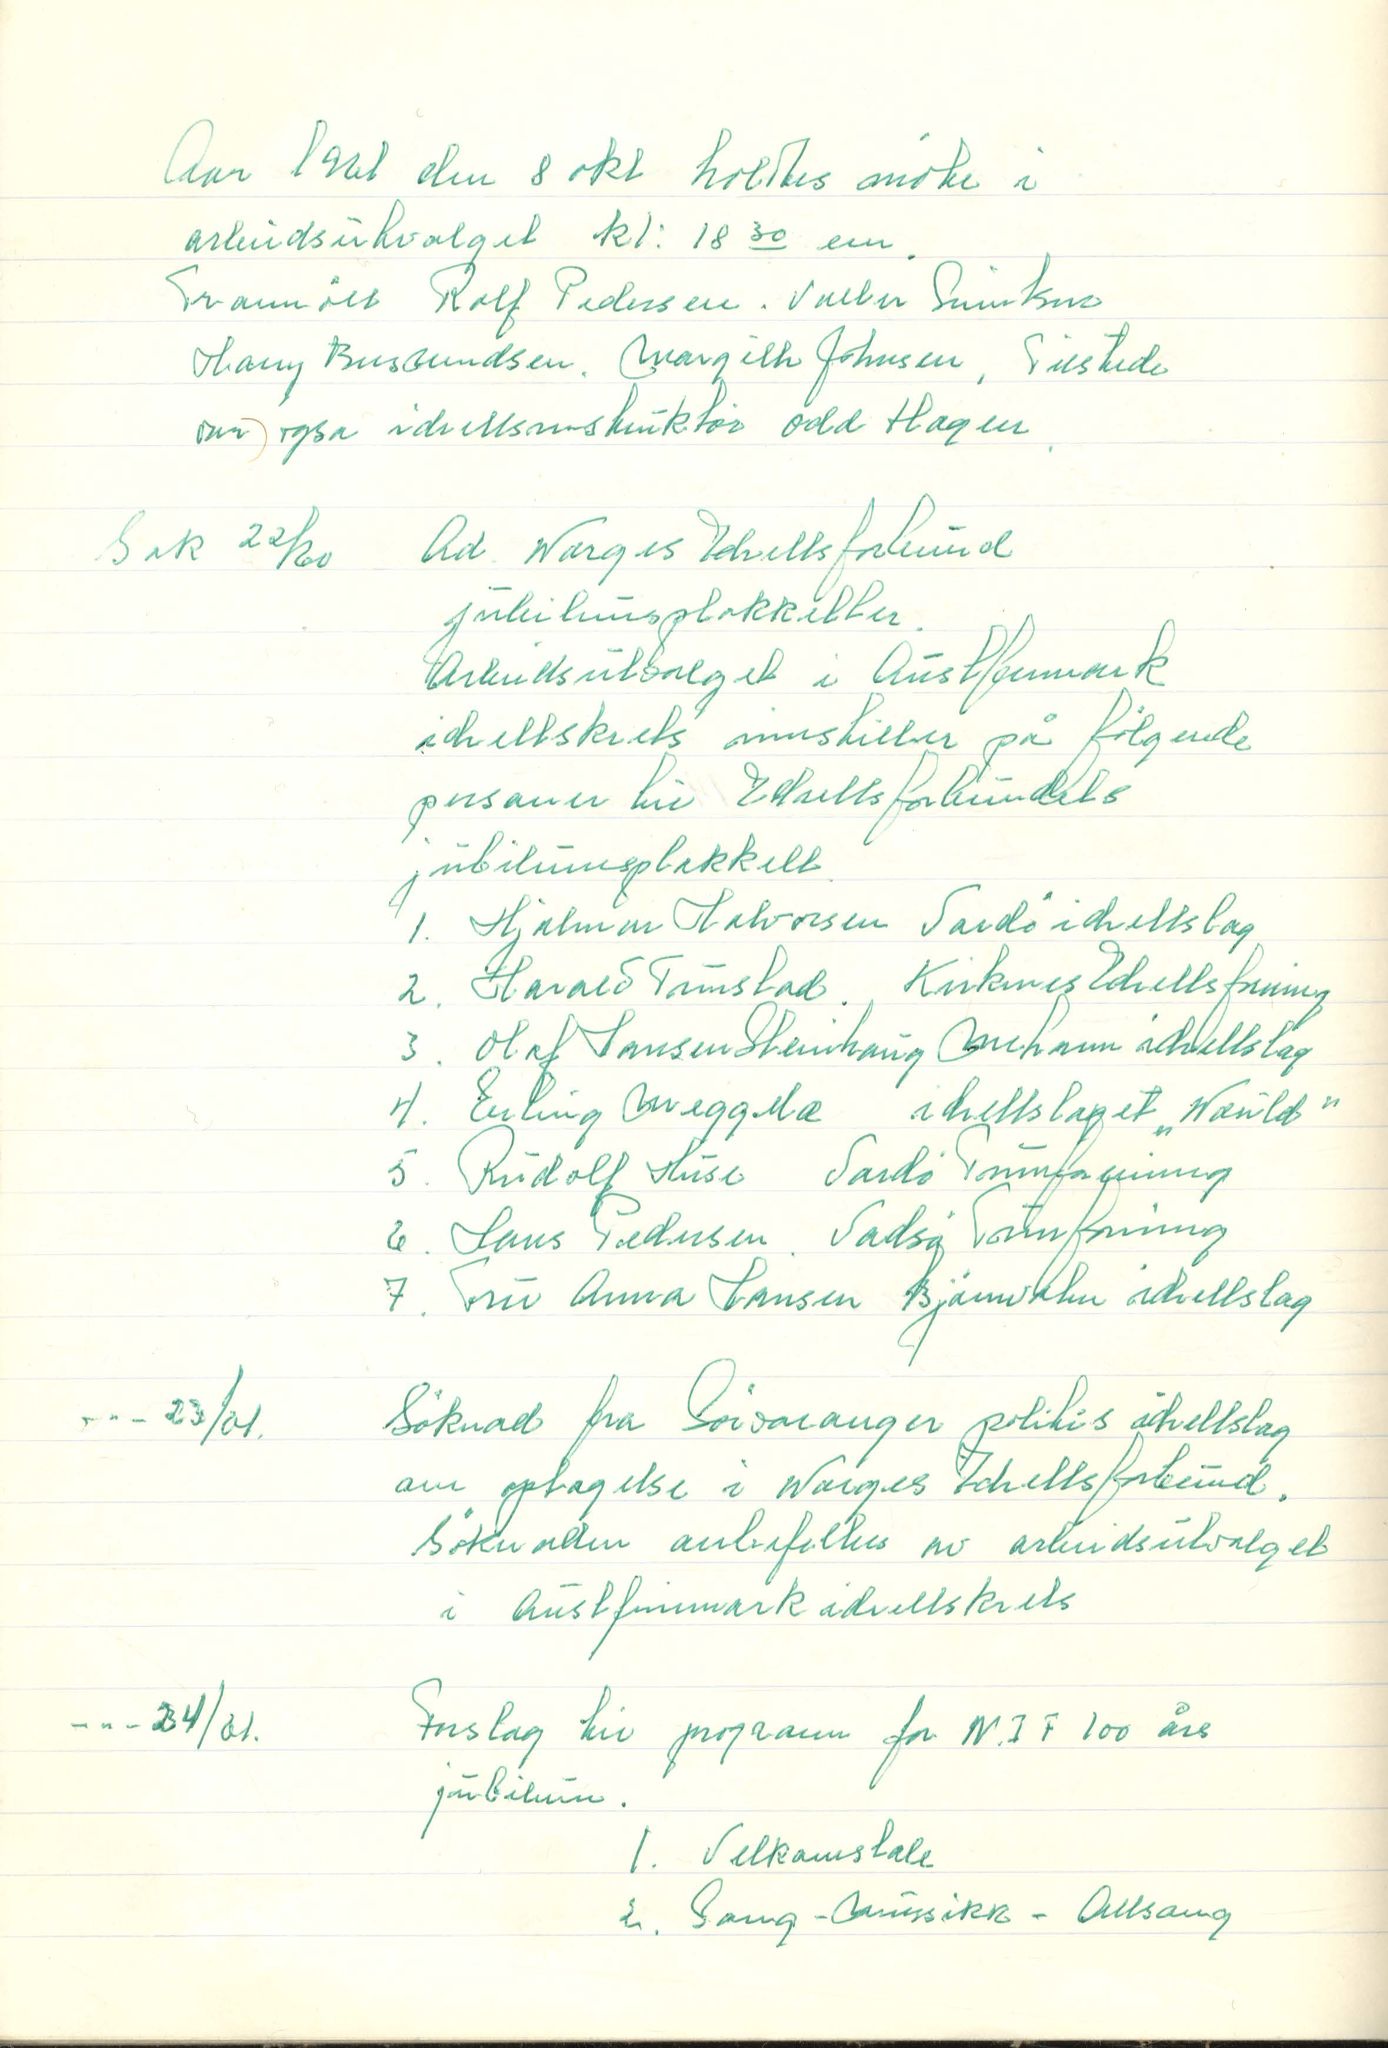 Aar 1961 den 8 okt holtes möte i
arbeidsutvalget kl: 18 30 em.
Framött Rolf Pedersen. Valter
Harry Busundsen. Margith Johnsen, Tilstede
var også idrettsinstruktör Odd Hagen.
Sak 22/60 Ad. Norges Idrettsforbund
jubileumsplakketter.
Arbeidsutvalget i Austfinmark
idrettskrets innstiller på fölgende
personer til Idrettsforbundets
jubileumsplakkett
1. Hjalmar Halvorsen Vardö idrettslag
2. Harald Tunstad. Kirkenes Idrettsforening
3. Olaf Hansen Steinhaug Mehamn idrettslag
4. Erling Meggelæ idrettslaget "Norild"
5. Rudolf Huse Vardö Turnforening
6. Hans Pedersen. Vadsö Turnforening
7. Fru Anna Hansen Bjørnvatn idrettslag
--"- 23/61. Söknad fra Sörvaranger politis idrettslag
om optagelse i Norges Idrettsforbund.
Söknaden anbefaltes av arbeidsutvalget
i Austfinnmark idrettskrets
--"- 24/61. Forslag til program for N.I F 100 års
jubileum.
1. Velkomstale
2. Sang - Mussikk - Allsang